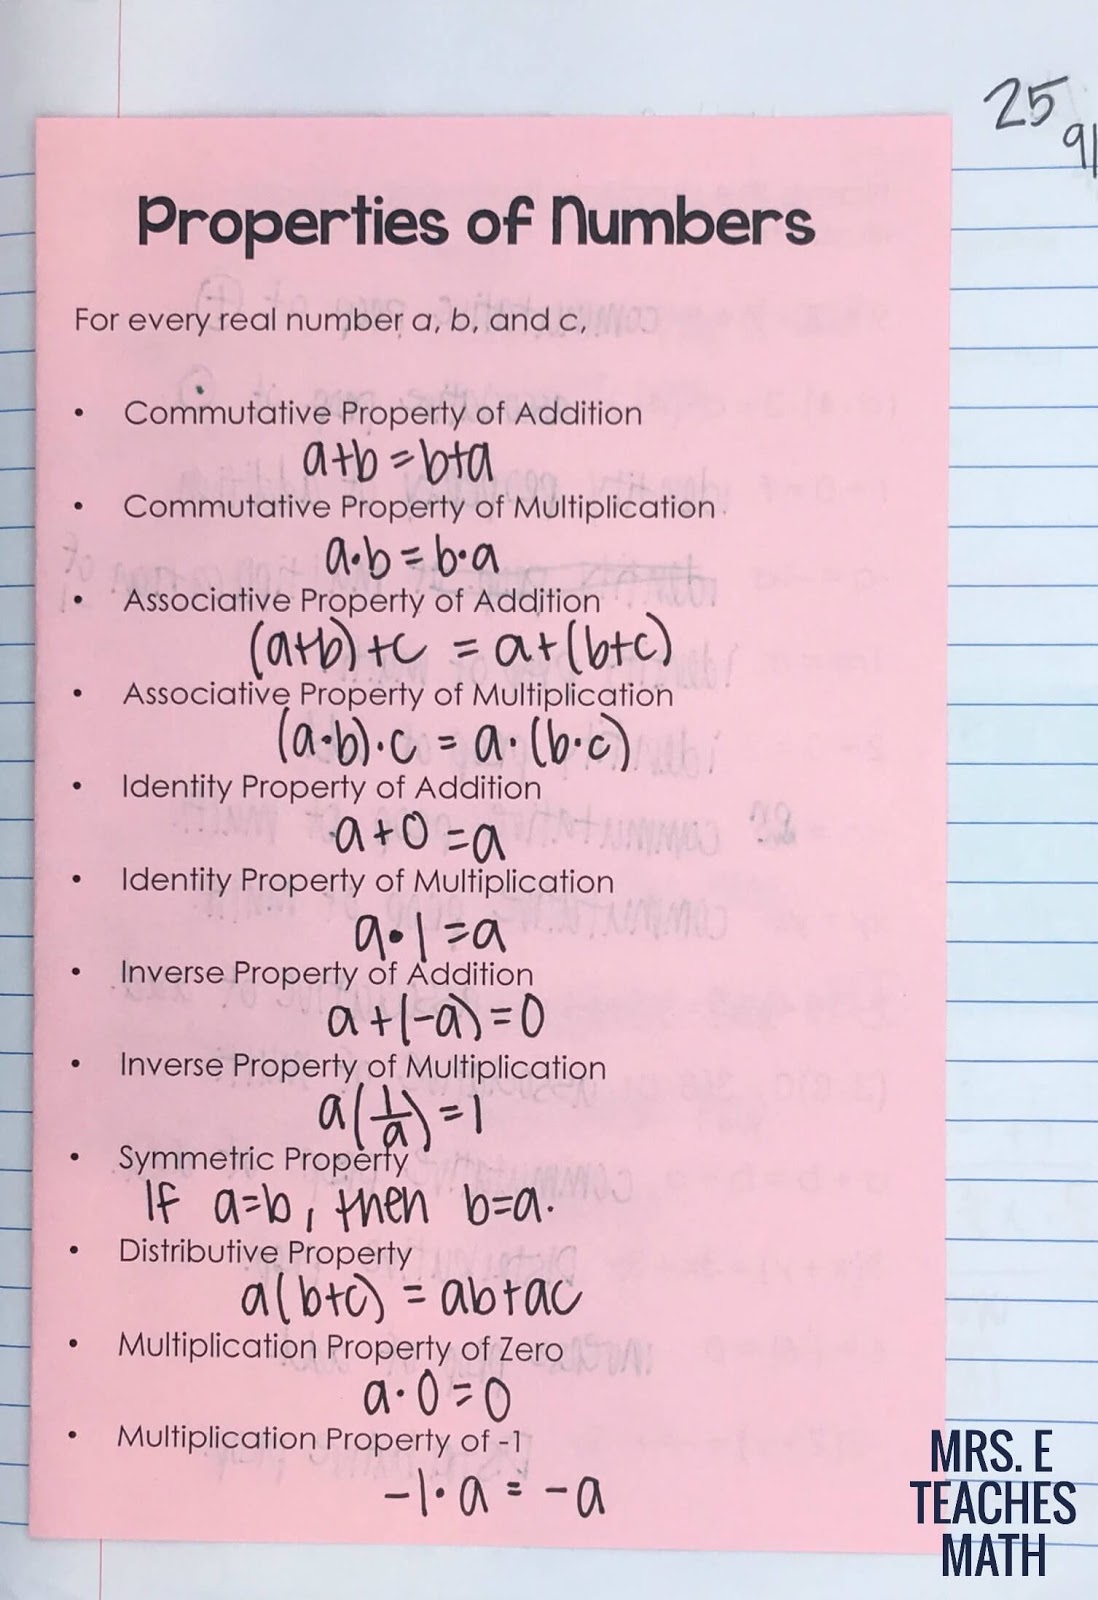 25
91
Properties of Numbers
For every real number a, b, and c,
• Commutative Property of Addition
a+b=b+a
• Commutative Property of Multiplication
a·b=b·a
• Associative Property of Addition
(a+b)+c = a+(b+c)
• Associative Property of Multiplication
(a·b)·c = a·(b·c)
• Identity Property of Addition
a+0=a
• Identity Property of Multiplication
a·1=a
• Inverse Property of Addition
a+(-a)=0
• Inverse Property of Multiplication
a(1/a)=1
• Symmetric Property
If a=b, then b=a.
• Distributive Property
a(b+c) = ab+ac
• Multiplication Property of Zero
a·0=0
• Multiplication Property of -1
-1·a = -a
MRS. E
TEACHES
MATH